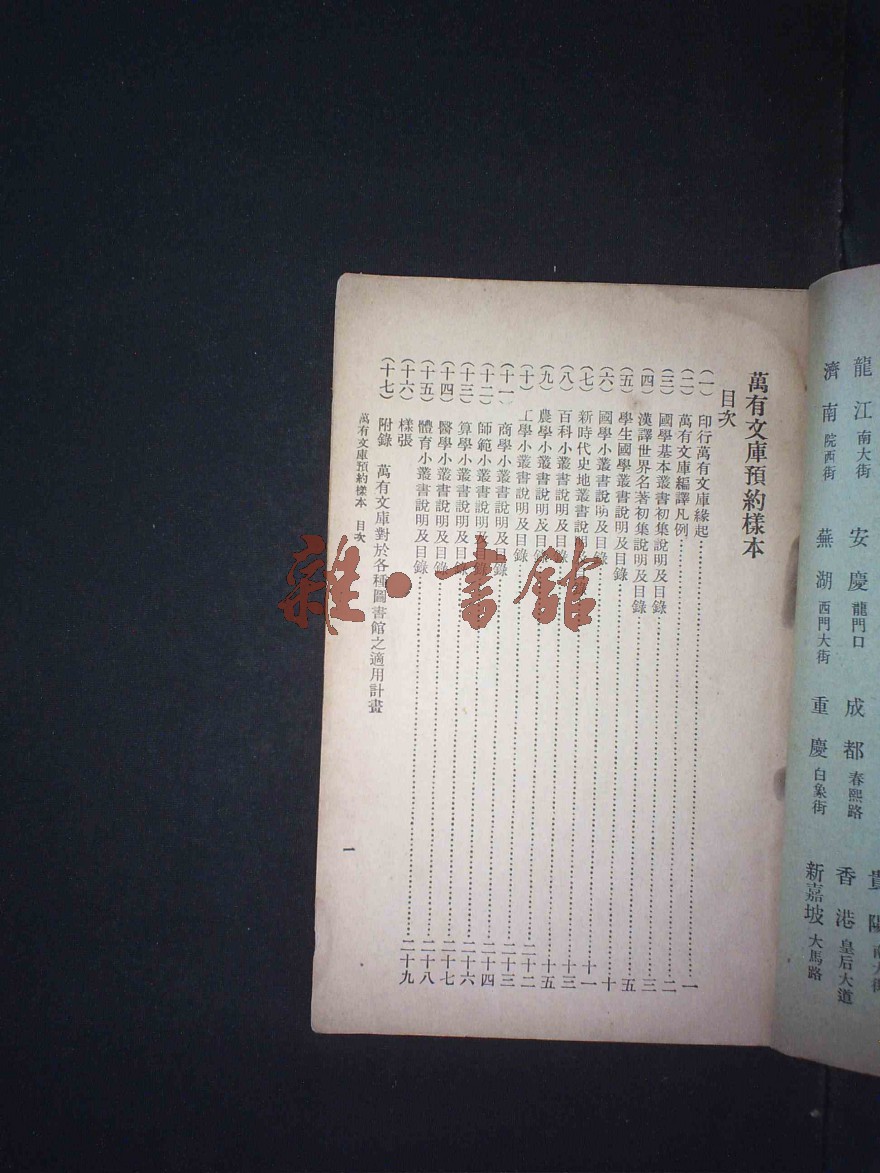 龍江 南大街 安慶 龍門口 成都 春熙路 香港 皇后大道
濟南 院西街 蕪湖 西門大街 重慶 白象街 新嘉坡 大馬路
萬有文庫預約樣本
目次
（一） 印行萬有文庫緣起……一
（二） 萬有文庫編譯凡例……二
（三） 國學基本叢書初集說明及目錄……三
（四） 漢譯世界名著初集說明及目錄……五
（五） 學生國學叢書說明及目錄……十
（六） 國學小叢書說明及目錄……十一
（七） 新時代史地叢書說明及目錄……十三
（八） 百科小叢書說明及目錄……十五
（九） 農學小叢書說明及目錄……二十二
（十） 工學小叢書說明及目錄……二十三
（十一） 商學小叢書說明及目錄……二十四
（十二） 師範小叢書說明及目錄……二十六
（十三） 算學小叢書說明及目錄……二十七
（十四） 醫學小叢書說明及目錄……二十八
（十五） 體育小叢書說明及目錄……二十九
（十六） 樣張
（十七） 附錄 萬有文庫對於各種圖書館之適用計畫
萬有文庫預約樣本 目次
一
雜·書館